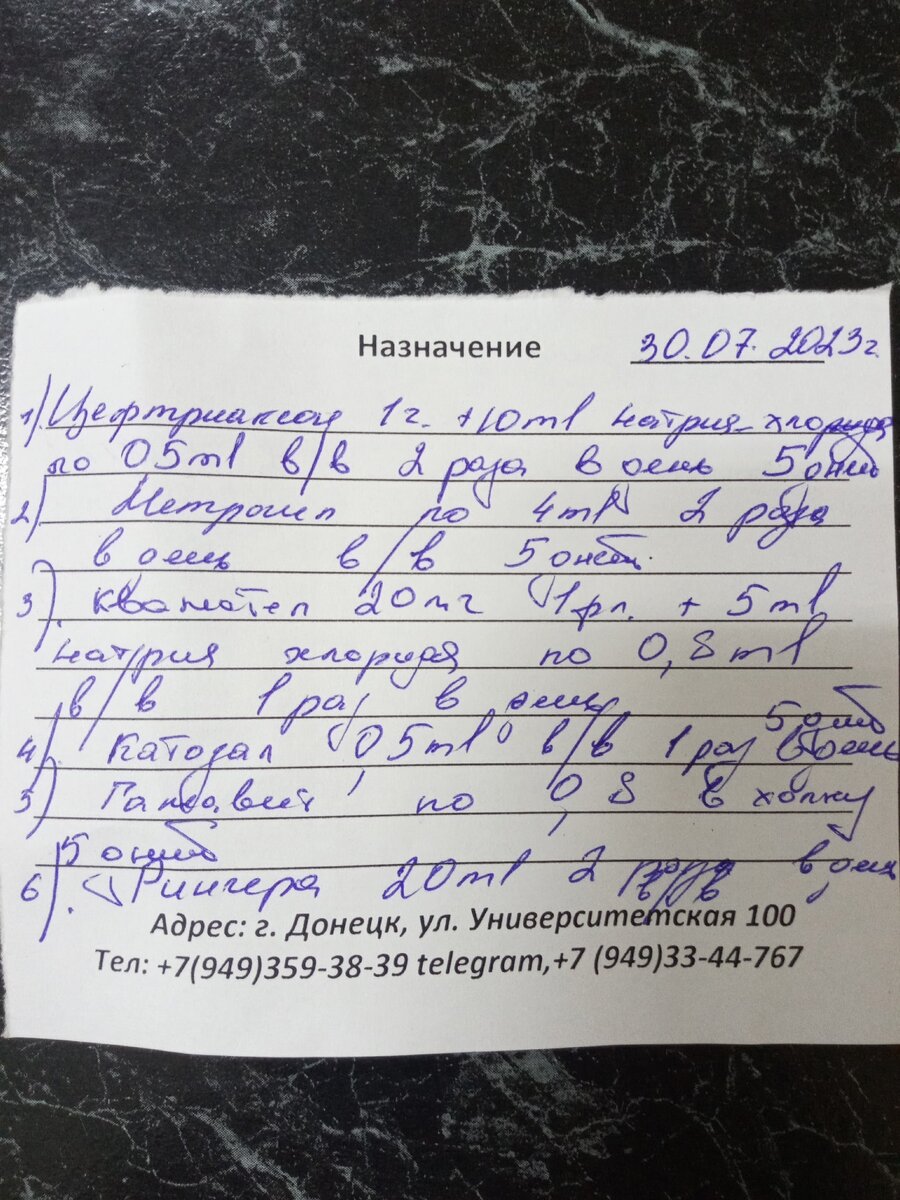 Назначение 30.07.2023г.
1) Цефтриаксон 1г. +10ml натрия хлорида
по 05ml в/в 2 раза в день 5 дней
2) Метрогил по 4ml 2 раза
в день в/в 5 дней.
3) Квамател 20мг 1фл. + 5ml
натрия хлорида по 0,8ml
в/в 1 раз в день 5 дней
4) Катозал 0,5ml в/в 1 раз в день
5) Гамавит по 0,8 в холку
5 дней
6) Рингера 20ml 2 раза в день
в/в
Адрес: г. Донецк, ул. Университетская 100
Тел: +7(949)359-38-39 telegram,+7 (949)33-44-767